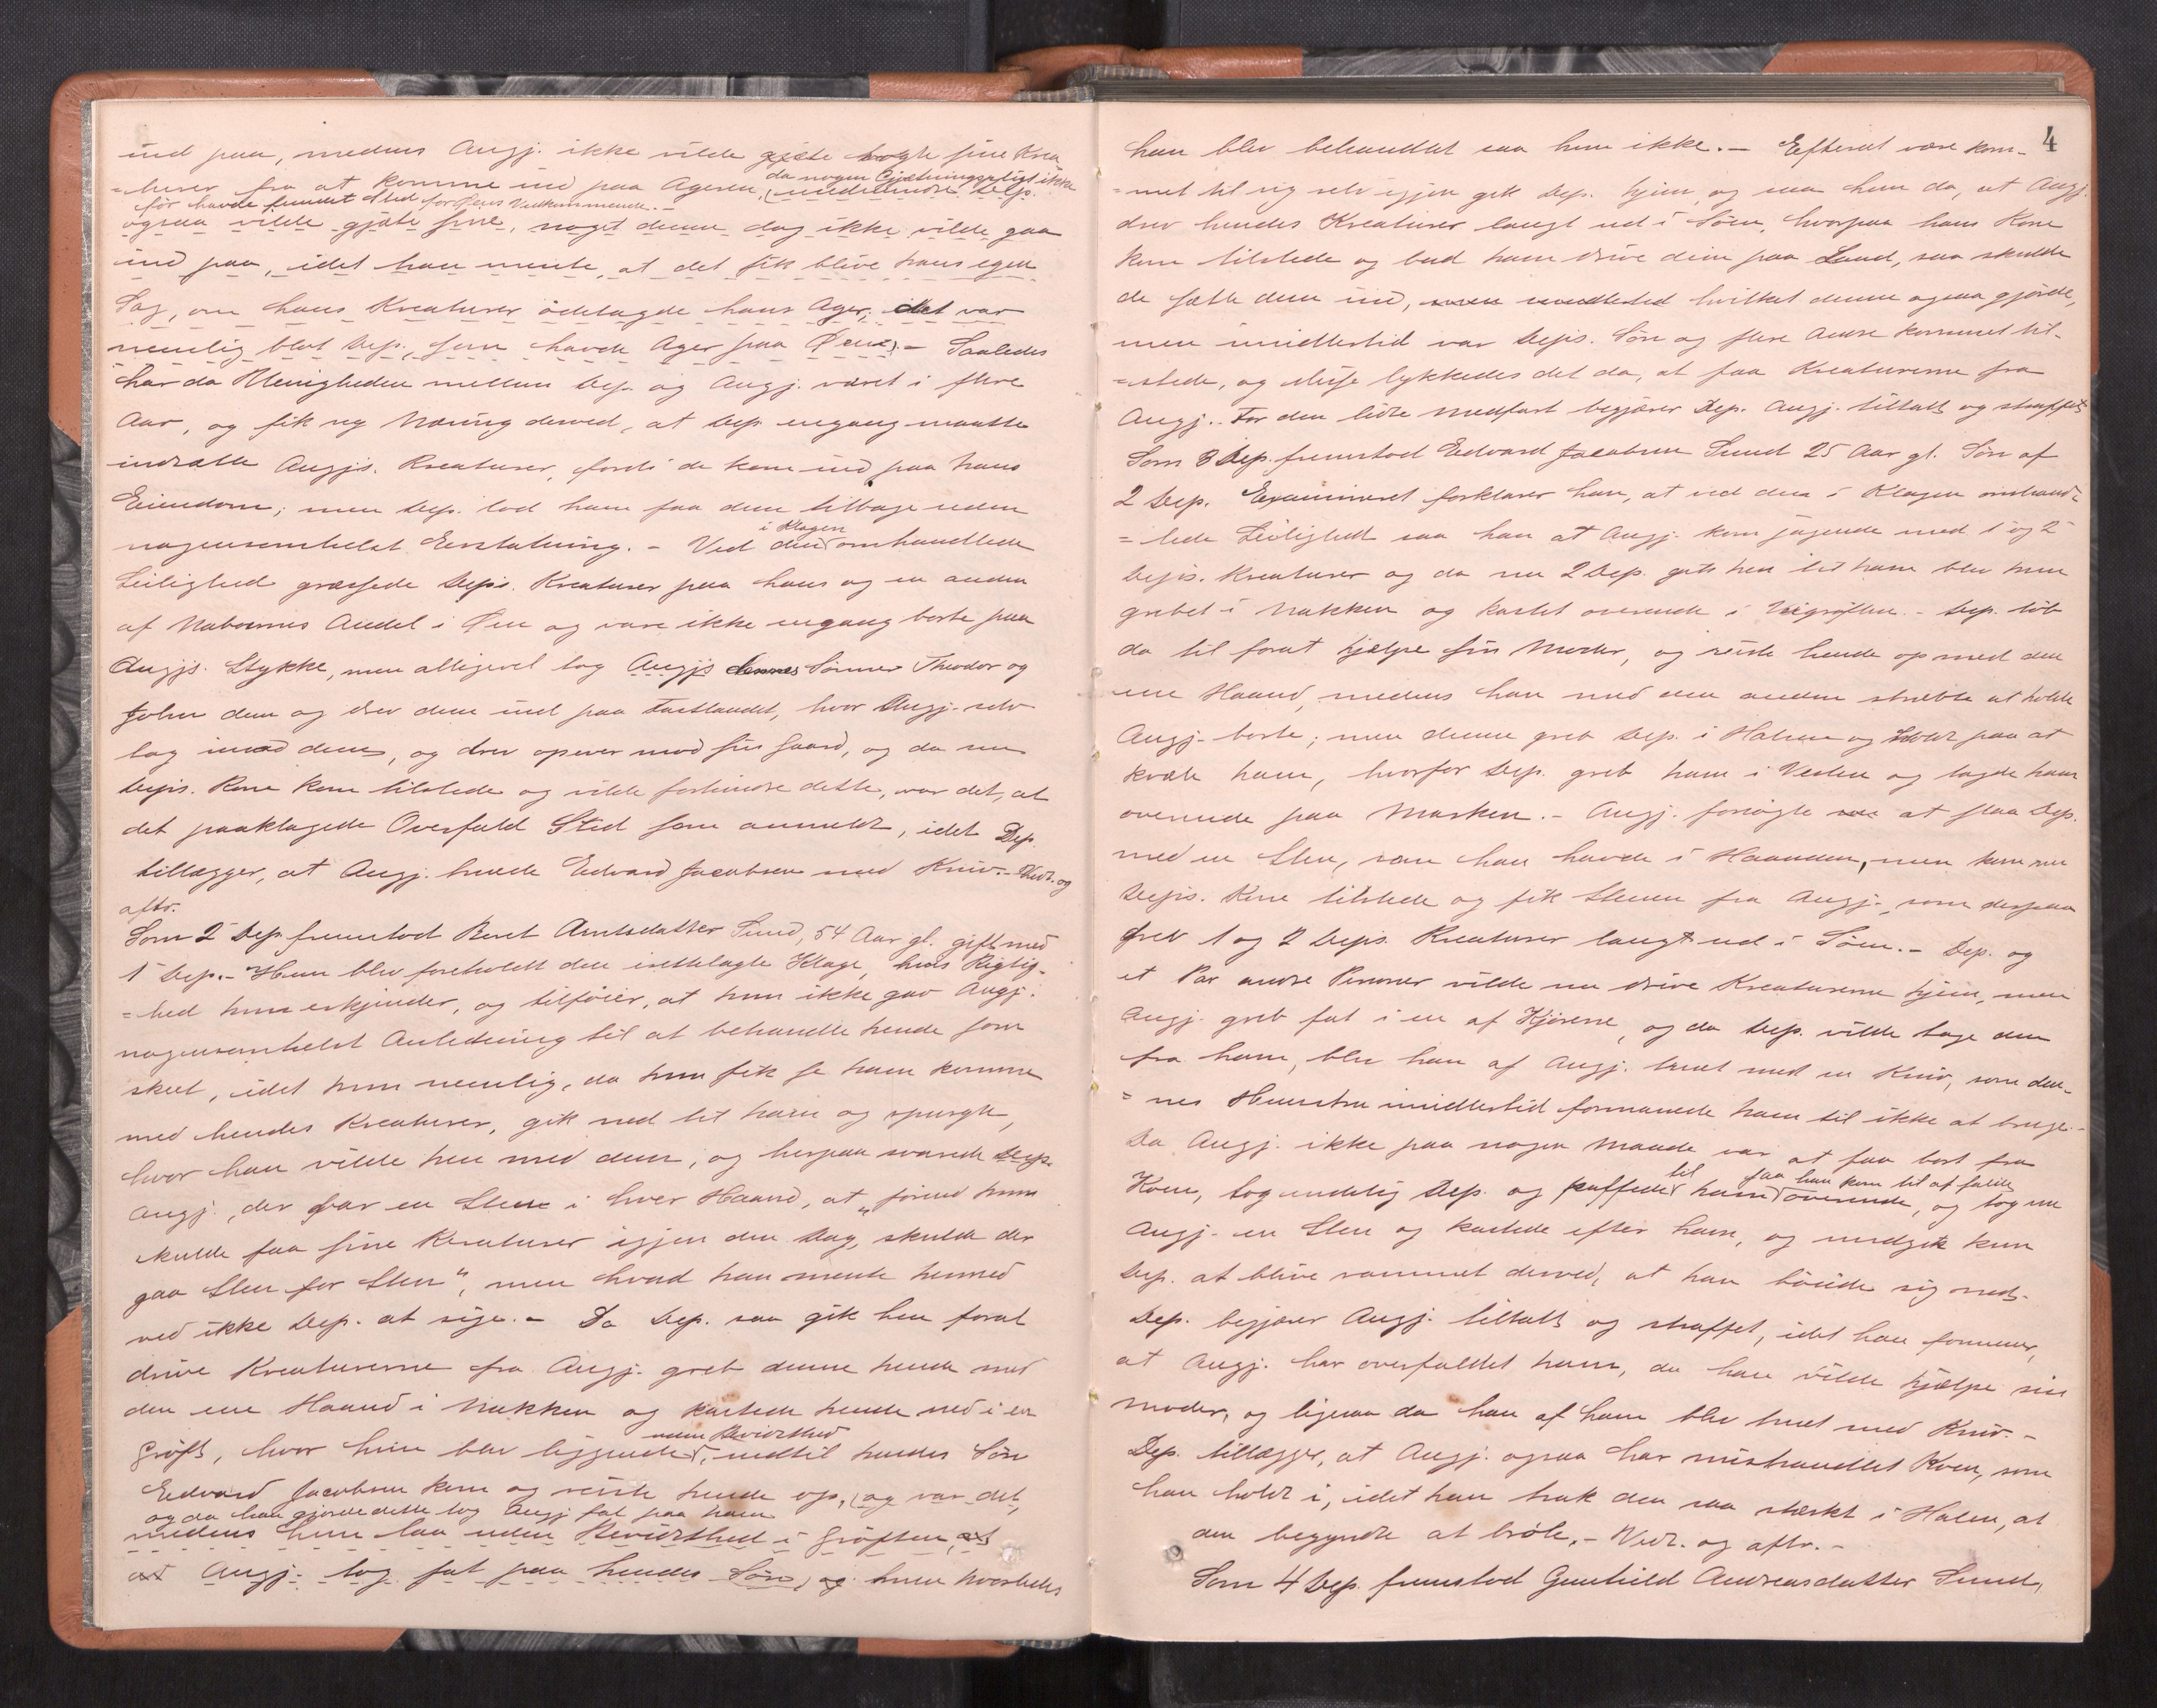 ind paa, medens Angj. ikke vilde gjæte sine Krea
=turer fra at komme ind paa Ageren, da nogen Gjætningspligt ikke
før havde fundet Sted for Øens Vedkommende.-
medmindre Dep.
ogsaa vilde gjæte sine, noget denne dog ikke vilde gaa
ind paa, idet han mente, at det fik blive hans egen
Sag, om hans Kreaturer ødelagde hans Ager, det var
nemlig blot Dep., som havde Ager paa Øen.- Saaledes
har da Uenigheden mellem Dep. og Angj. været i flere
Aar, og fik ny Næring derved, at Dep. engang maatte
indsætte Angjs. Kreaturer, fordi de kom ind paa hans
Eiendom; men Dep. lod ham faa dem tilbage uden
nogensomhelst Erstatning.- Ved den i Klagen omhandlede
Leilighed græssede Deps. Kreaturer paa hans og en anden
af Naboernes Andel i Øen og vare ikke engang borte paa
Angjs. Stykke, men alligevel tog Angjs dennes Sønner Theodor og
John dem og drev dem ind paa Fastlandet, hvor Angj. selv
tog imod dem, og drev opover mod sin Gaard, og da nu
Depis. Kone kom tilstede og vilde forhindre dette, var det, at
det paaklagede Overfald Sted som anmeldt, idet Dep.
tillægger, at Angj. truede Edvard Jacobsen med Kniv.- Vedt. og
aftr.
Som 2 Dep. fremstod Beret Arntsdatter Sund, 54 Aar gl. gift med
1 Dep.- Hun blev foreholdt den irettelagte Klage, hvis Rigtig-
=hed hun erkjender, og tilføier, at hun ikke gav Angj.
nogensomhelst Anledning til at behandle hende som
skeet, idet hun nemlig, da hun fik se ham komme
med hendes Kreaturer, gik ned til ham og spurgte,
hvor han vilde hen med dem, og herpaa svarede Dep.
Angj., der bar en Sten i hver Haand, at "førend hun
skulde faa sine Kreaturer igjen den Dag, skulde der
gaa Sten for Sten", men hvad han mente hermed
ved ikke Dep. at sige.- Da Dep. saa gik hen forat
drive Kreaturerne fra Angj. greb denne hende med
den ene Haand i Nakken og kastede hende ned i en
Grøft, hvor hun blev liggende uden Bevidsthed, indtil hendes Søn
Edvard Jacobsen kom og reiste hende op, og var det,
og da han gjorde dette tog Angj fat paa ham
medens hun laa uden Bevidsthed i Grøften, at
at Angj. tog fat paa hendes Søn, og hvorledes
4
han blev behandlet saa hun ikke.- Efterat være kom-
=met til sig selv igjen gik Dep. hjem, og saa hun da, at Angj.
drev hendes Kreaturer langt ud i Søen, hvorpaa hans Kone
kom tilstede og bad ham drive dem paa Land, saa skulde
de sætte dem ind, men imidlertid hvilket denne ogsaa gjorde,
men imidlertid var Depis. Søn og flere Andre kommet til-
=stede, og disse lykkedes det da, at faa Kreaturerne fra
Angj.. For den lidte Medfart begjærer Dep. Angj. tiltalt og straffet.
Som 3 Dep. fremstod Edvard Jacobsen Sund 25 Aar gl. Søn af
2 Dep. Examineret forklarer han, at ved den i Klagen omhand-
=lede Leilighed saa han at Angj. kom jagende med 1 og 2
Depis. Kreaturer og da nu 2 Dep. gik hen til ham blev hun
grebet i Nakken og kastet overende i Veigrøften.- Dep. løb
da til forat hjælpe sin Moder, og reiste hende op med den
ene Haand, medens han med den anden stræbte at holde
Angj. borte; men denne greb Dep. i Halsen og holdt paa at
kvæle ham, hvorfor Dep. greb ham i Vesten og lagde ham
overende paa Marken.- Angj. forsøgte at slaa Dep.
med en Sten, som han havde i Haanden, men kom nu
Depis. Kone tilstede og fik Stenen fra Angj., som derpaa
drev 1 og 2 Depis. Kreaturer langt ud i Søen.- Dep. og
et Par andre Personer vilde nu drive Kreaturerne hjem, men
Angj. greb fat i en af Kjørene, og da Dep. vilde tage den
fra ham, blev han af Angj. truet med en Kniv, som den-
=nes Hustru imidlertid formanede ham til ikke at bruge.-
Da Angj. ikke paa nogen Maade var at faa bort fra
Koen, tog endelig Dep. og puffede til ham saa han kom til at falde overende, og tog nu
Angj. en Sten og kastede efter ham, og undgik kun
Dep. at blive rammet derved, at han bøiede sig ned.-
Dep. begjærer Angj. tiltalt og straffet, idet han formener,
at Angj. har overfaldet ham, da han vilde hjælpe sin
Moder, og ligesaa da han af ham blev truet med Kniv.-
Dep. tillægger, at Angj. ogsaa har mishandlet Koen, som
han holdt i, idet han trak den saa stærkt i Halen, at
den begyndte at brøle.- Vedt. og aftr.-
Som 4 Dep. fremstod Gunhild Andreasdatter Sund,